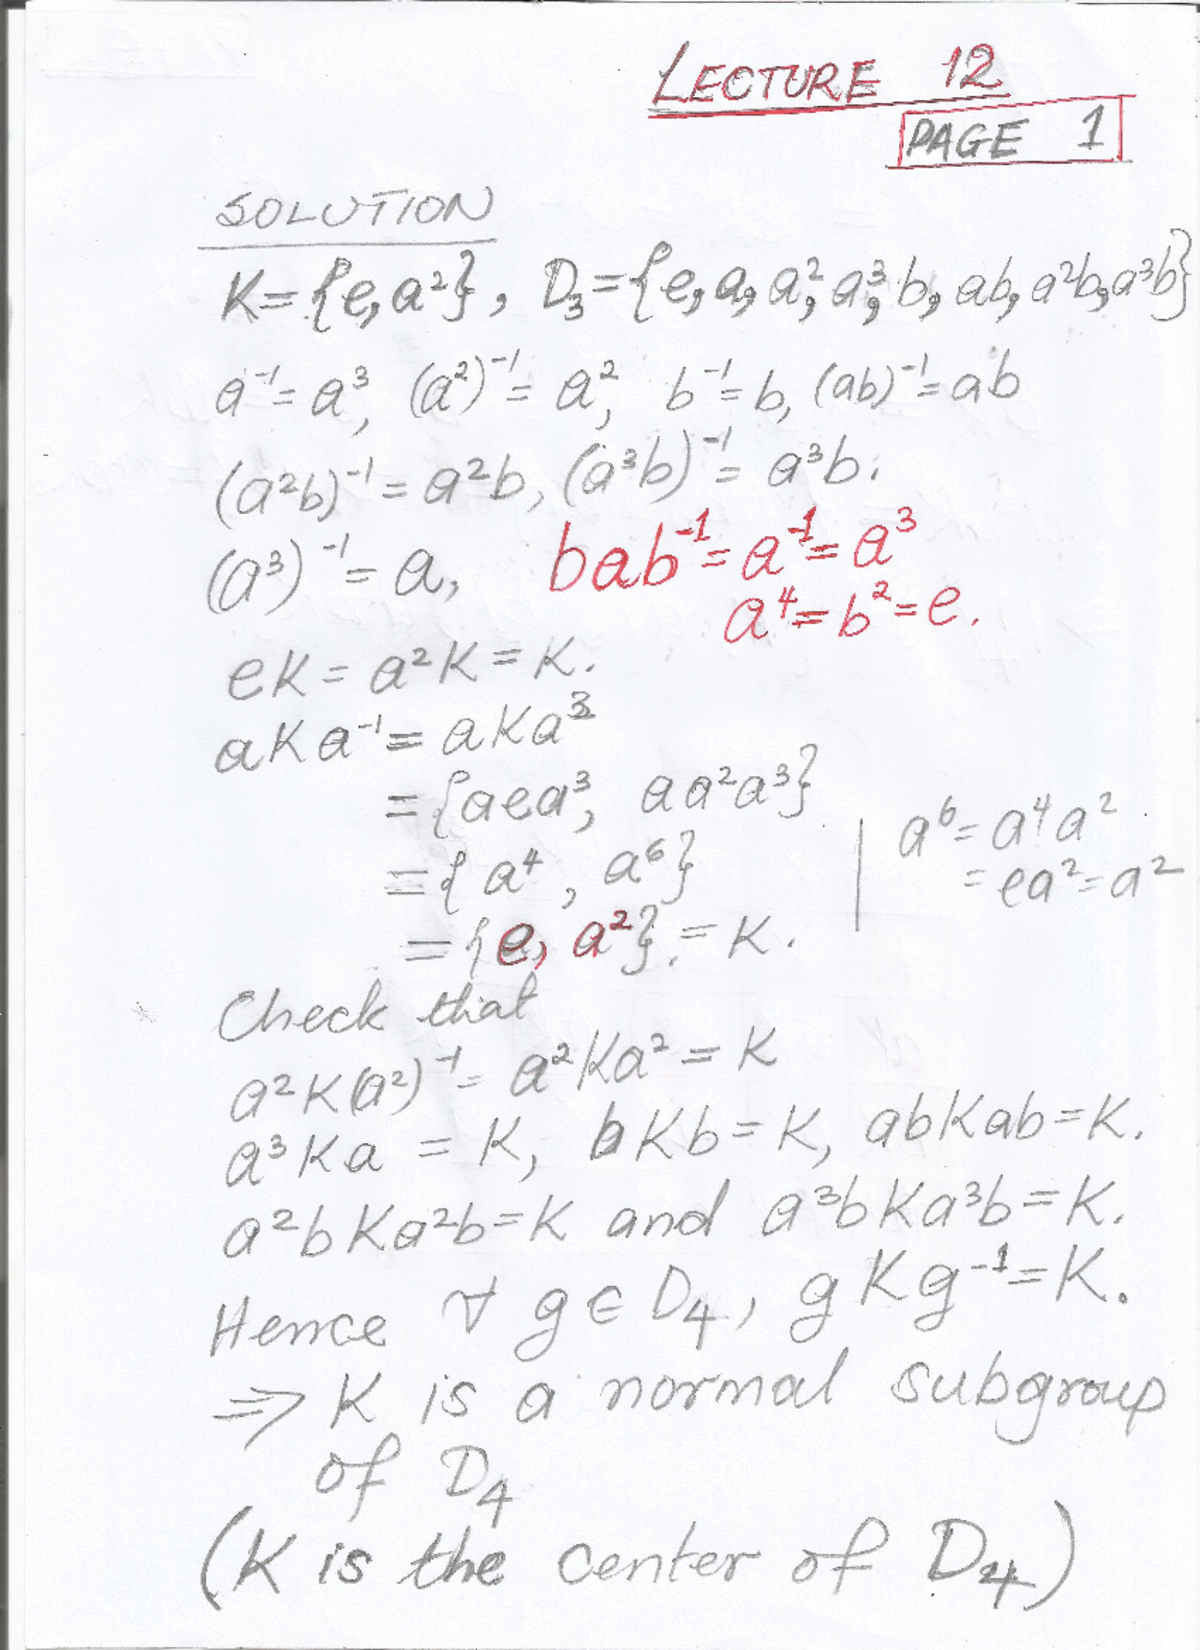 LECTURE 12
PAGE 1
SOLUTION
K={e,a²}, D₃={e,a,a²,a³,b,ab,a²b,a³b}
a⁻¹=a³, (a²)⁻¹=a², b⁻¹=b, (ab)⁻¹=ab
(a²b)⁻¹=a²b, (a³b)⁻¹=a³b.
(a³)⁻¹=a, bab⁻¹=a⁻¹=a³
a⁴=b²=e.
eK=a²K=K.
aKa⁻¹=aKa³
={aea³, aa²a³}
={a⁴, a⁶}
a⁶=a⁴a²
=ea²=a²
={e, a²}.=K.
Check that
a²K(a²)⁻¹=a²Ka²=K
a³Ka=K, bKb=K, abKab=K.
a²bKa²b=K and a³bKa³b=K.
Hence ∀ g∈D₄, gKg⁻¹=K.
⇒ K is a normal subgroup
of D₄
(K is the center of D₄)